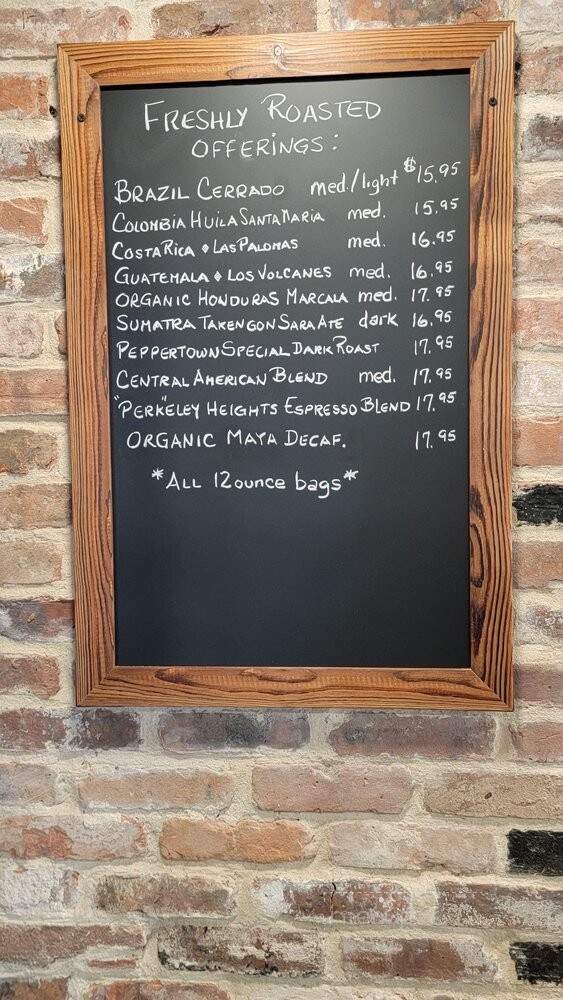 FRESHLY ROASTED
OFFERINGS:
BRAZIL CERRADO med./light $15.95
COLOMBIA HUILA SANTA MARIA med. 15.95
COSTA RICA • LAS PALOMAS med. 16.95
GUATEMALA • LOS VOLCANES med. 16.95
ORGANIC HONDURAS MARCALA med. 17.95
SUMATRA TAKENGON SARA ATE dark 16.95
PEPPERTOWN SPECIAL DARK ROAST 17.95
CENTRAL AMERICAN BLEND med. 17.95
"PERK"ELEY HEIGHTS ESPRESSO BLEND 17.95
ORGANIC MAYA DECAF. 17.95
*ALL 12 ounce bags*